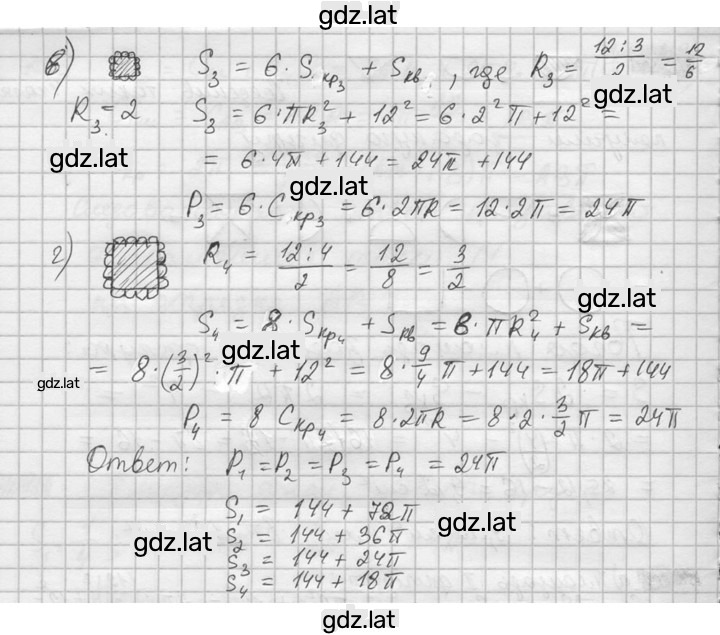 gdz.lat
в) S₃ = 6·S кр₃ + Sкв, где R₃ = (12:3)/2 = 12/6
gdz.lat
R₃ = 2 S₃ = 6·πR₃² + 12² = 6·2²π + 12² =
gdz.lat
= 6·4π + 144 = 24π + 144
gdz.lat
P₃ = 6·C кр₃ = 6·2πR = 12·2π = 24π
г) R₄ = (12:4)/2 = 12/8 = 3/2
gdz.lat
S₄ = 8·Sкр₄ + Sкв = 8·πR₄² + Sкв =
gdz.lat
= 8·(3/2)²·π + 12² = 8·9/4 π + 144 = 18π + 144
gdz.lat
P₄ = 8 Cкр₄ = 8·2πR = 8·2·3/2 π = 24π
Ответ: P₁ = P₂ = P₃ = P₄ = 24π
S₁ = 144 + 72π
gdz.lat
S₂ = 144 + 36π
gdz.lat
S₃ = 144 + 24π
S₄ = 144 + 18π
gdz.lat